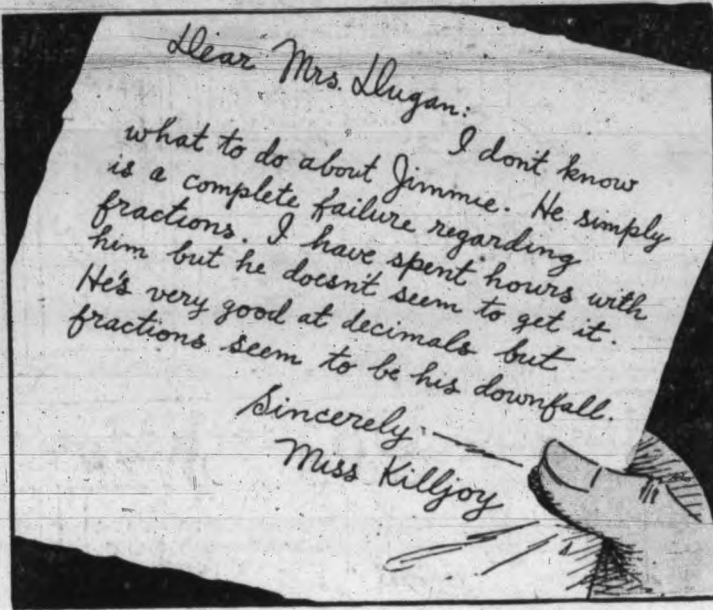 Dear Mrs. Dugan:
I don't know
what to do about Jimmie. He simply
is a complete failure regarding
fractions. I have spent hours with
him but he doesn't seem to get it.
He's very good at decimals but
fractions seem to be his downfall.
Sincerely
Miss Killjoy